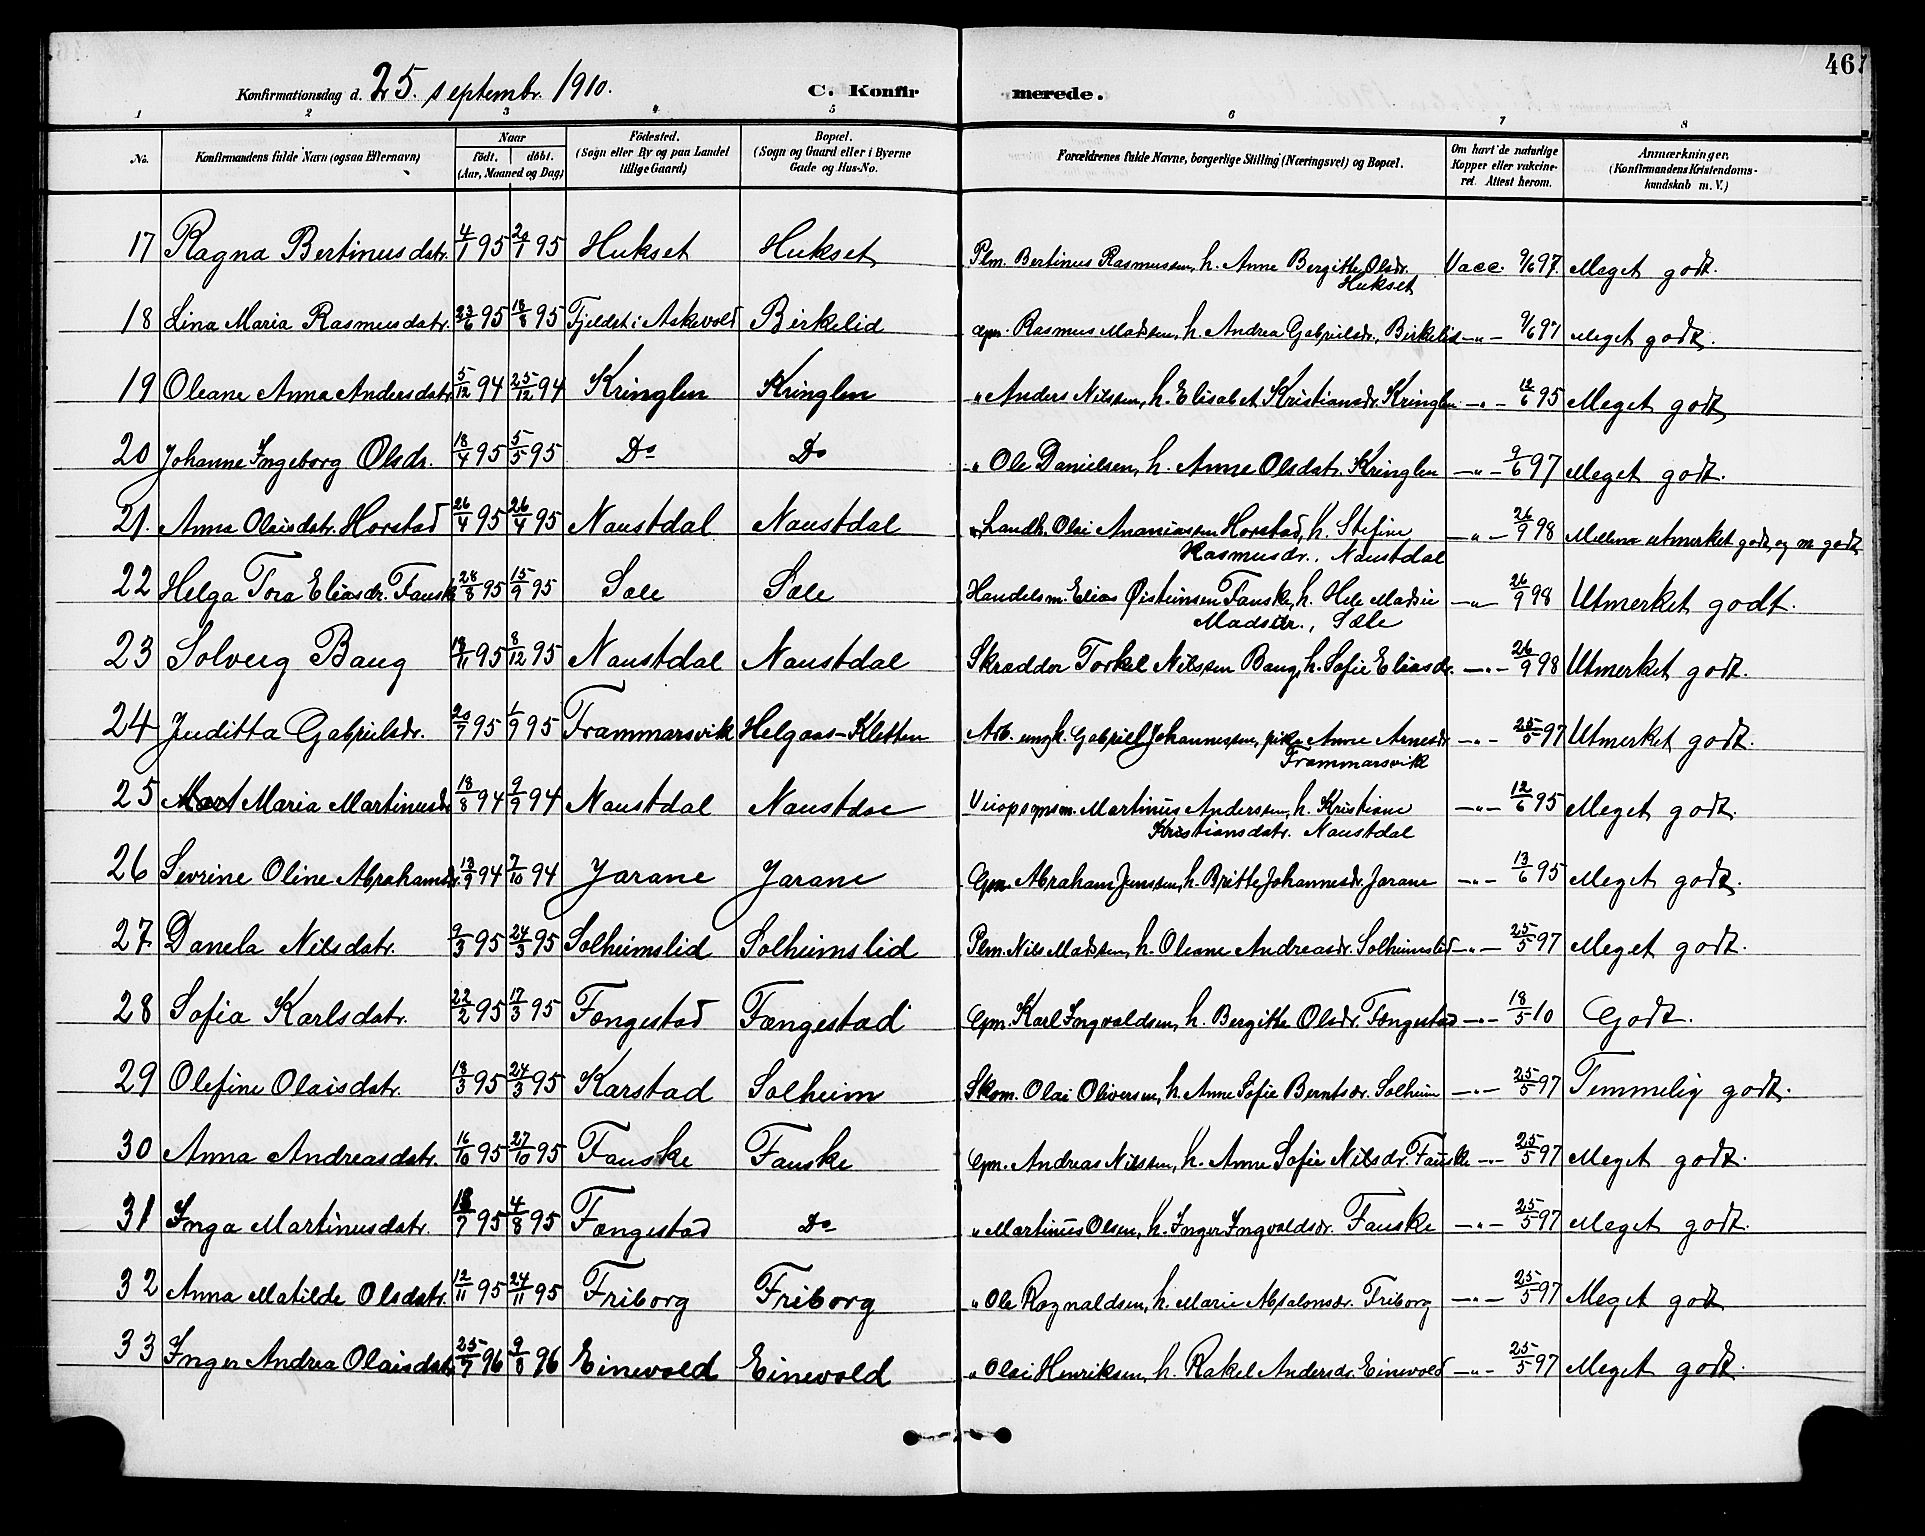 46
Konfirmationsdag d. 25. septembr. 1910. C. Konfir merede.
1 2 3 4 5 6 7 8
No. Konfirmandens fulde Navn (ogsaa Efternavn) Naar født. døbt. (Aar, Maaned og Dag) Fødested. (Sogn eller By og paa Landet tillige Gaard) Bopæl. (Sogn og Gaard eller i Byerne Gade og Hus-No. Forældrenes fulde Navne, borgerlige Stilling (Næringsvei) og Bopæl. Om havt de naturlige Kopper eller vakcineret. Attest herom. Anmærkninger. (Konfirmandens Kristendomskundskab m. V.)
17 Ragna Bertinusdatr. 4/1 95 20/1 95 Hukset Hukset Plm. Bertinus Rasmussen, h. Anne Bergitte Olsdr. Vacc. 9/6 97 Meget godt.
Hukset
18 Lina Maria Rasmusdatr. 23/6 95 18/8 95 Fjeldet i Askevold Birkelid Gpm. Rasmus Madssen, h. Andrea Gabrielsdr., Birkelid —"— 9/6 97 Meget godt.
19 Oleane Anna Andersdatr. 5/12 94 25/12 94 Kringlen Kringlen " Anders Nilssen, h. Elisabet Kristiansdr. Kringlen —"— 12/6 95 Meget godt
20 Johanne Ingeborg Olsdr. 18/4 95 5/5 95 Do Do " Ole Danielsen, h. Anne Olsdatr. Kringlen —"— 9/6 97 Meget godt.
21. Anna Olaisdatr. Horstad 26/4 95 26/4 95 Naustdal Naustdal Landh. Olai Ananiassen Horstad, h. Stefine —"— 26/9 98 Mellem utmerket godt og m godt
Rasmusdr., Naustdal
22 Helga Tora Eliasdr. Fauske 28/8 95 15/9 95 Sæle Sæle Handelsm. Elias Øisteinsen Fauske, h. Hele Madsie —"— 26/9 98 Utmerket godt.
Madsdr., Sæle
23 Solveig Baug 18/11 95 8/12 95 Naustdal Naustdal Skrædder Torkel Nilssen Baug, h. Sofie Eliasdr. —"— 26/9 98 Utmerket godt.
24 Juditta Gabrielsdr. 20/7 95 1/9 95 Frammarsvik Helgaas-Kletten Arb. ungk. Gabriel Johannessen, pike Anne Arnesdr —"— 25/5 97 Utmerket godt.
Frammarsvik
25 Maria Martinusdr 18/8 94 9/9 94 Naustdal Naustdal Veiopsynsm. Martinus Anderssen, h. Kristiane —"— 12/6 95 Meget godt.
Kristiansdatr. Naustdal
26 Sevrine Oline Abrahamsdr. 13/9 94 7/10 94 Jarane Jarane Gpm. Abraham Jenssen, h. Britte Johannesdr. Jarane —"— 13/6 95 Meget godt.
27 Danela Nilsdatr. 9/3 95 24/3 95 Solheimslid Solheimslid Plm. Nils Madssen, h. Oleane Andreasdr. Solheimslid —"— 25/5 97 Meget godt.
28 Sofia Karlsdatr. 22/2 95 17/3 95 Fængestad Fængestad Gpm. Karl Ingvaldsen, h. Bergitte Olsdr. Fængestad —"— 18/5 10 Godt.
29 Olefine Olaisdatr. 13/3 95 24/3 95 Karstad Solheim Skom. Olai Oliversen, h. Anne Sofie Berntsdr. Solheim —"— 25/5 97 Temmelig godt.
30 Anna Andreasdatr. 16/10 95 27/10 95 Fauske Fauske Gpm. Andreas Nilssen, h. Anne Sofie Nilsdr. Fauske —"— 25/5 97 Meget godt.
31 Inga Martinusdatr. 18/7 95 4/8 95 Fængestad Do " Martinus Olsen, h. Inger Ingvaldsdr. Fauske —"— 25/5 97 Meget godt.
32 Anna Matilde Olsdatr. 12/11 95 24/11 95 Friborg Friborg " Ole Ragnaldsen, h. Marie Absalonsdr. Friborg —"— 25/5 97 Meget godt
33 Inger Andrea Olaisdatr. 25/7 96 9/8 96 Einevold Einevold " Olai Henriksen, h. Rakel Andersdr. Einevold —"— 25/5 97 Meget godt.